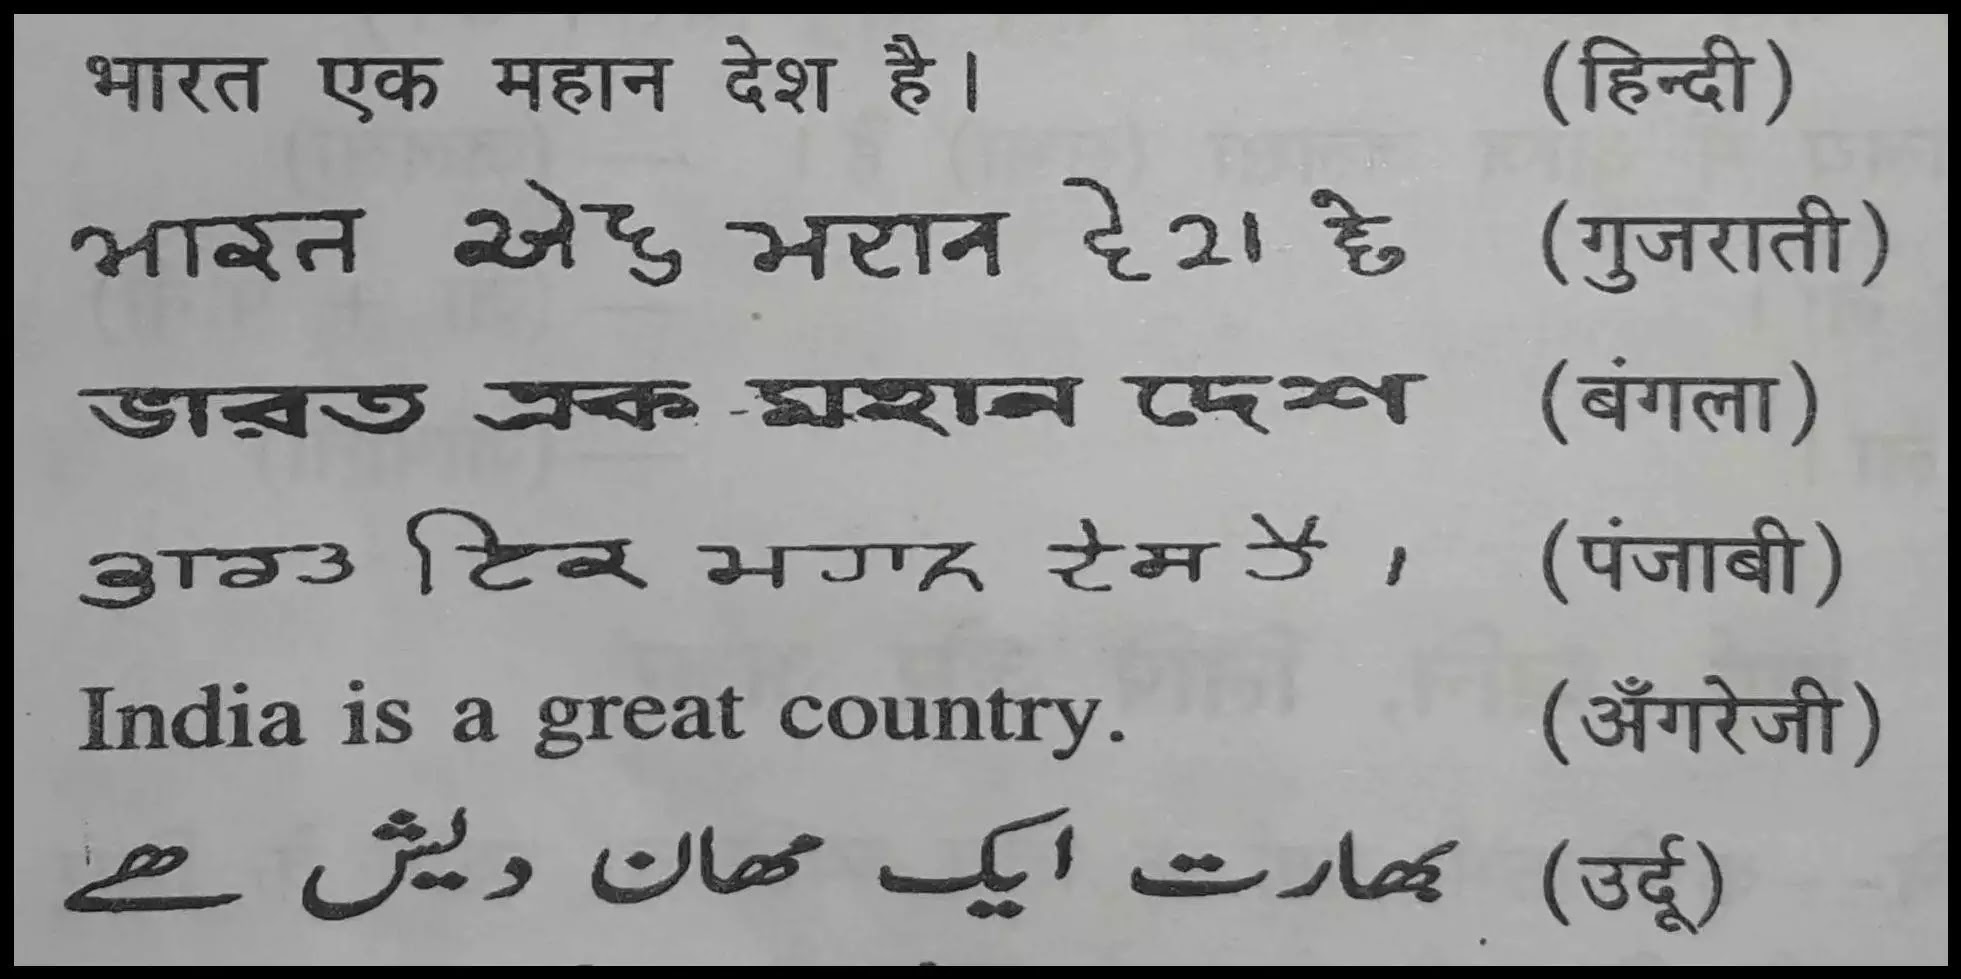 भारत एक महान देश है। (हिन्दी)
ભારત એક મહાન દેશ છે (गुजराती)
ভারত এক মহান দেশ (बंगला)
ਭਾਰਤ ਇਕ ਮਹਾਨ ਦੇਸ਼ ਹੈ। (पंजाबी)
India is a great country. (अँगरेजी)
بھارت ایک مھان دیش ھے (उर्दू)